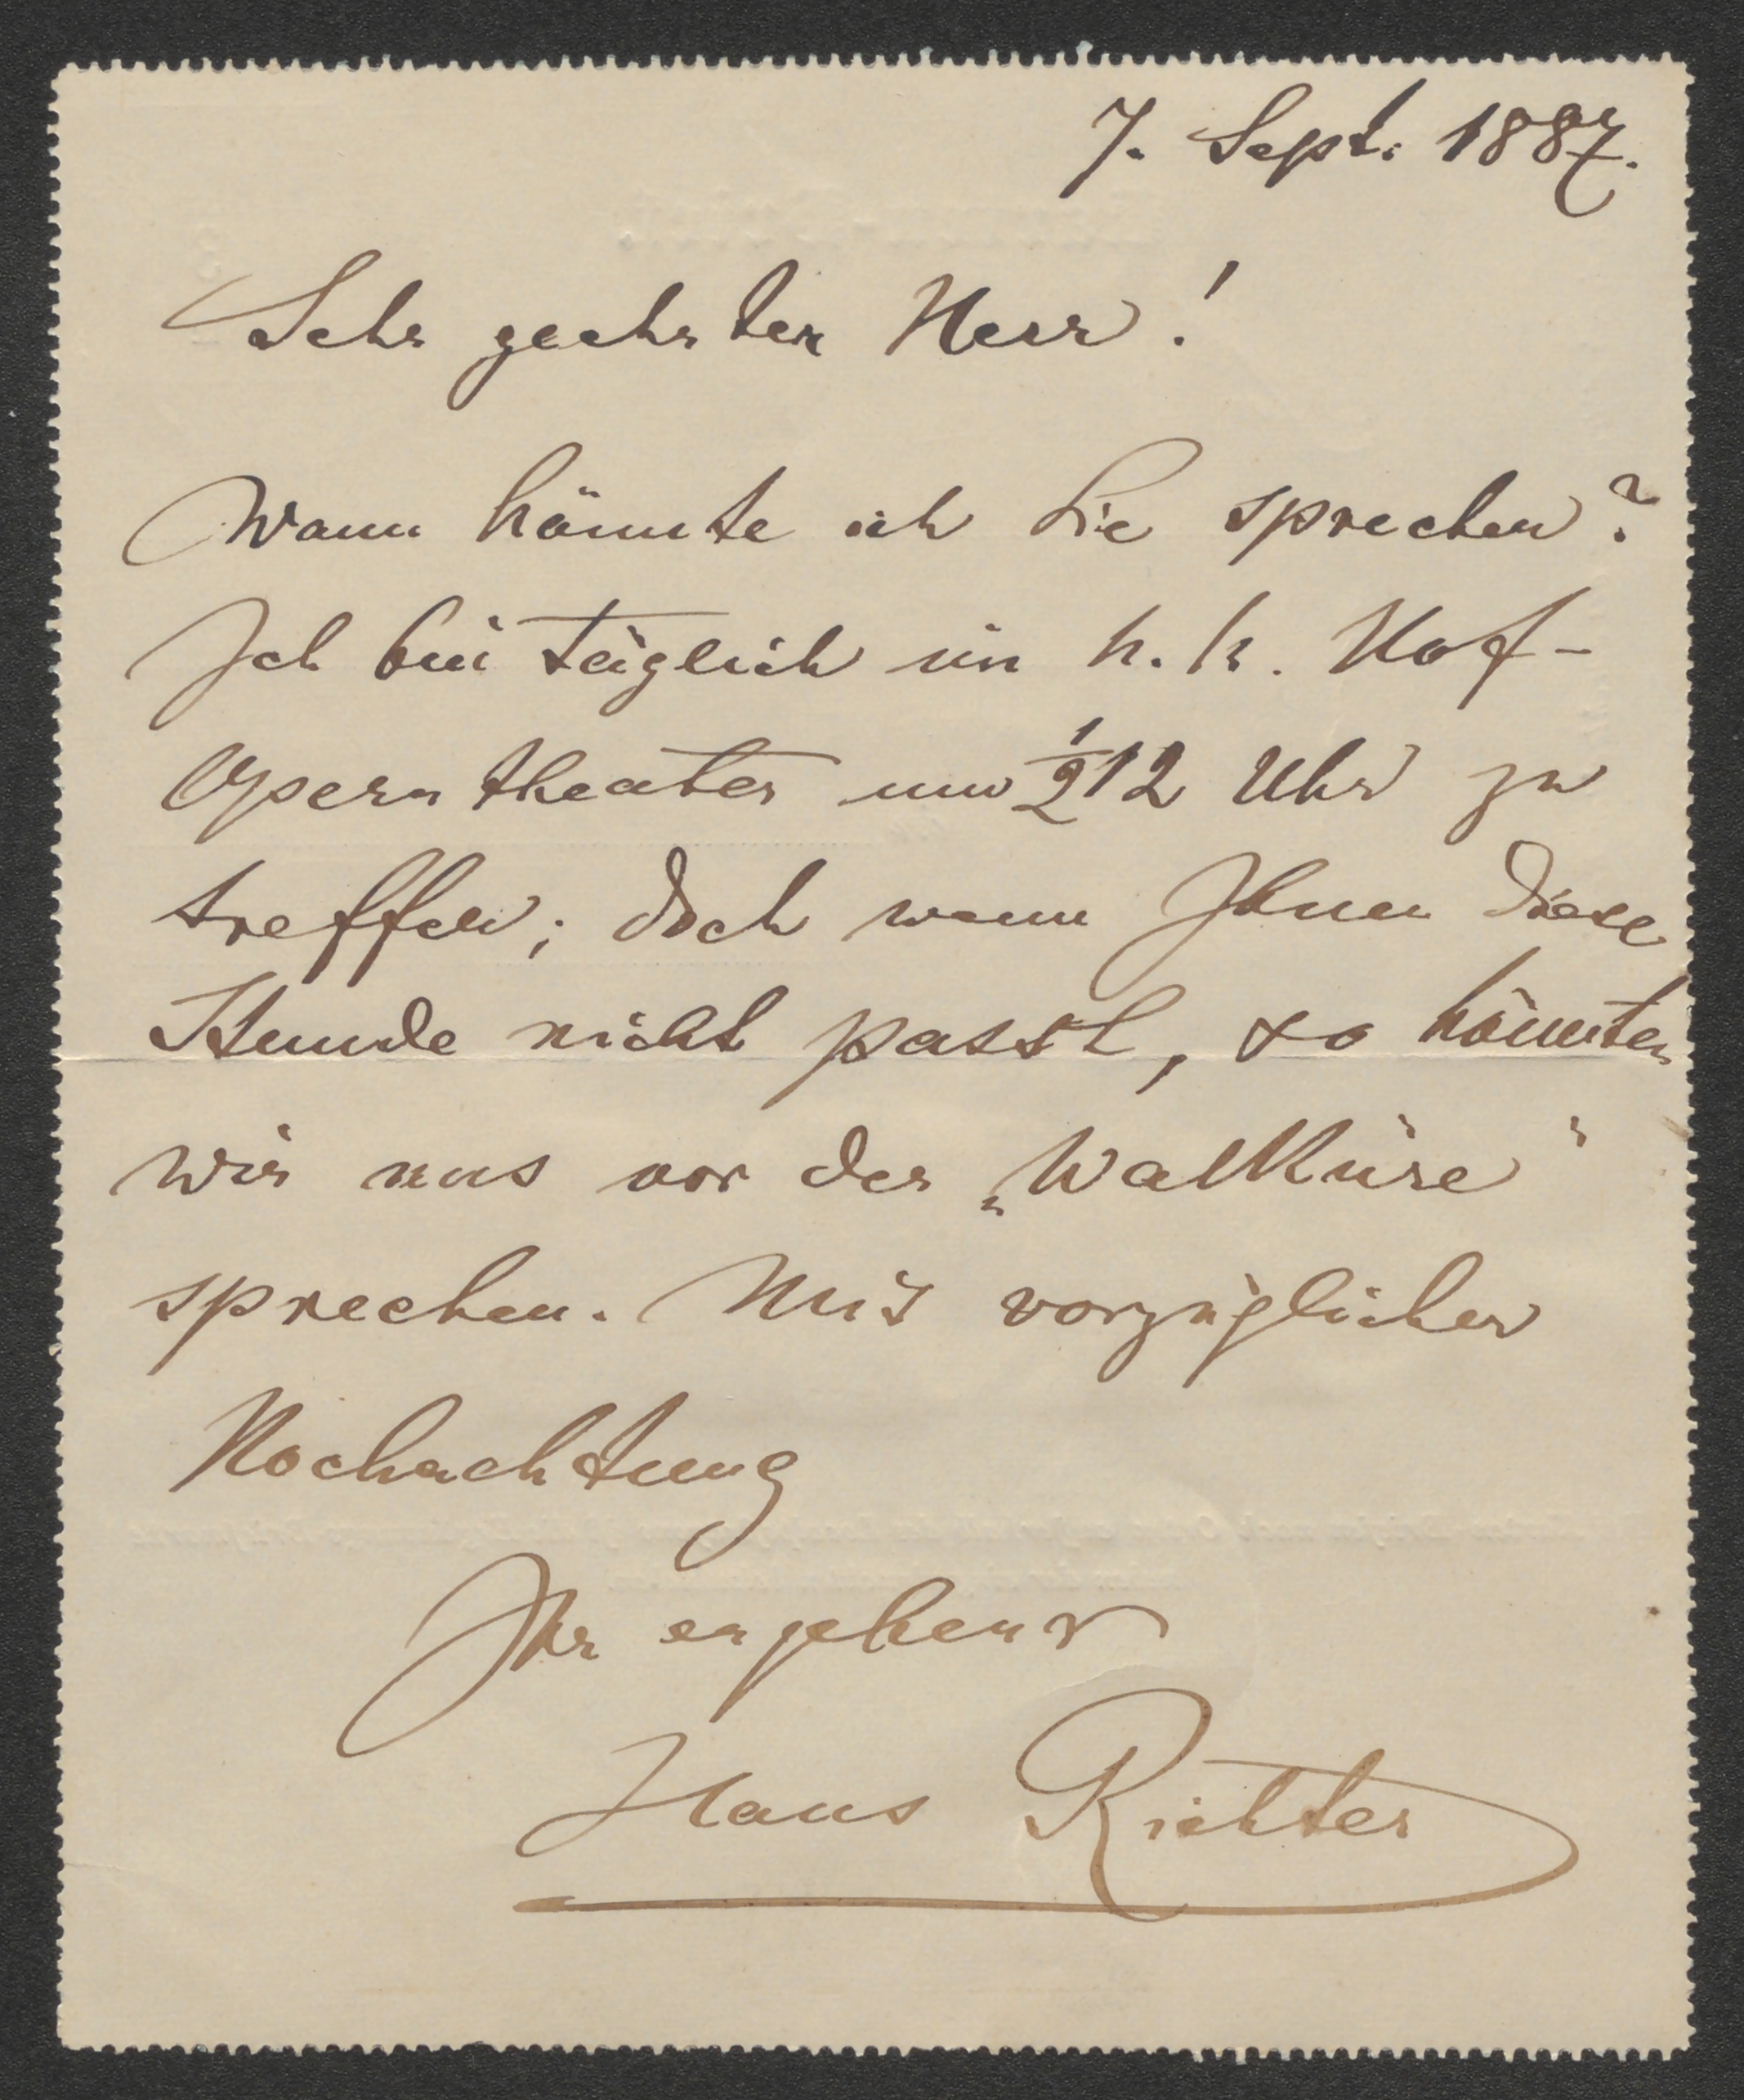 7. Sept. 1887.
Sehr geehrter Herr!
Wann könnte ich Sie sprechen?
Ich bin täglich im k. k. Hof-
Operntheater um ½12 Uhr zu
treffen; doch wenn Ihnen diese
Stunde nicht passt, so könnten
wir uns vor der „Walküre"
sprechen. Mit vorzüglicher
Hochachtung
Ihr ergebenst
Hans Richter